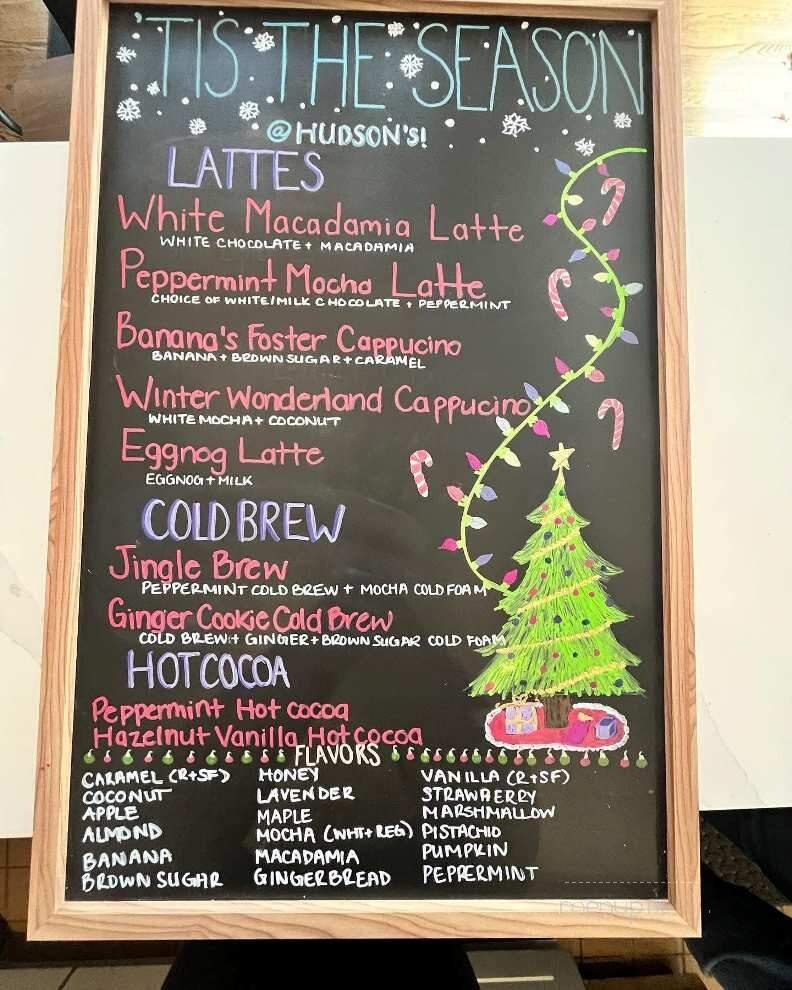 'TIS THE SEASON
@HUDSON'S!
LATTES
White Macadamia Latte
WHITE CHOCOLATE + MACADAMIA
Peppermint Mocha Latte
CHOICE OF WHITE/MILK CHOCOLATE + PEPPERMINT
Banana's Foster Cappucino
BANANA + BROWN SUGAR + CARAMEL
Winter Wonderland Cappucino
WHITE MOCHA + COCONUT
Eggnog Latte
EGGNOG + MILK
COLD BREW
Jingle Brew
PEPPERMINT COLD BREW + MOCHA COLD FOAM
Ginger Cookie Cold Brew
COLD BREW + GINGER + BROWN SUGAR COLD FOAM
HOT COCOA
Peppermint Hot cocoa
Hazelnut Vanilla Hot cocoa
FLAVORS
CARAMEL (R+SF) HONEY VANILLA (R+SF)
COCONUT LAVENDER STRAWBERRY
APPLE MAPLE MARSHMALLOW
ALMOND MOCHA (WHT+REG) PISTACHIO
BANANA MACADAMIA PUMPKIN
BROWN SUGAR GINGERBREAD PEPPERMINT